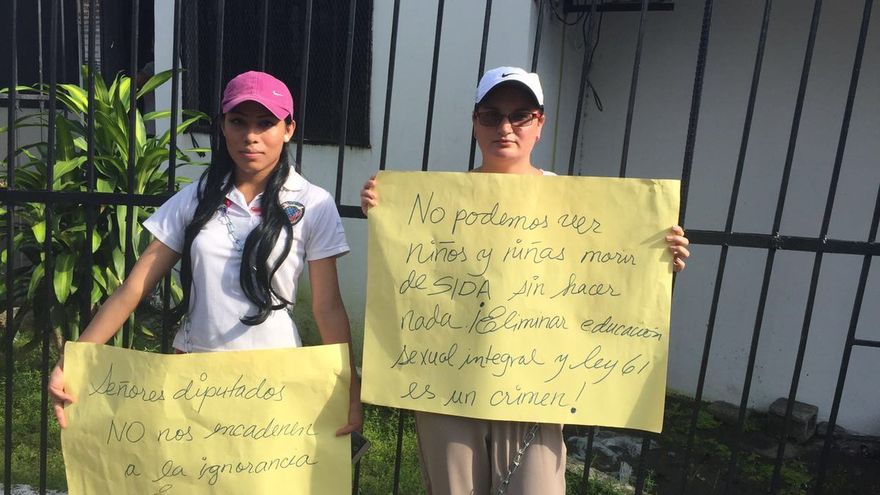 Señores diputados
NO nos encadenen
a la ignorancia
No podemos ver
niños y niñas morir
de SIDA sin hacer
nada ¡Eliminar educación
sexual integral y ley 61
es un crimen!